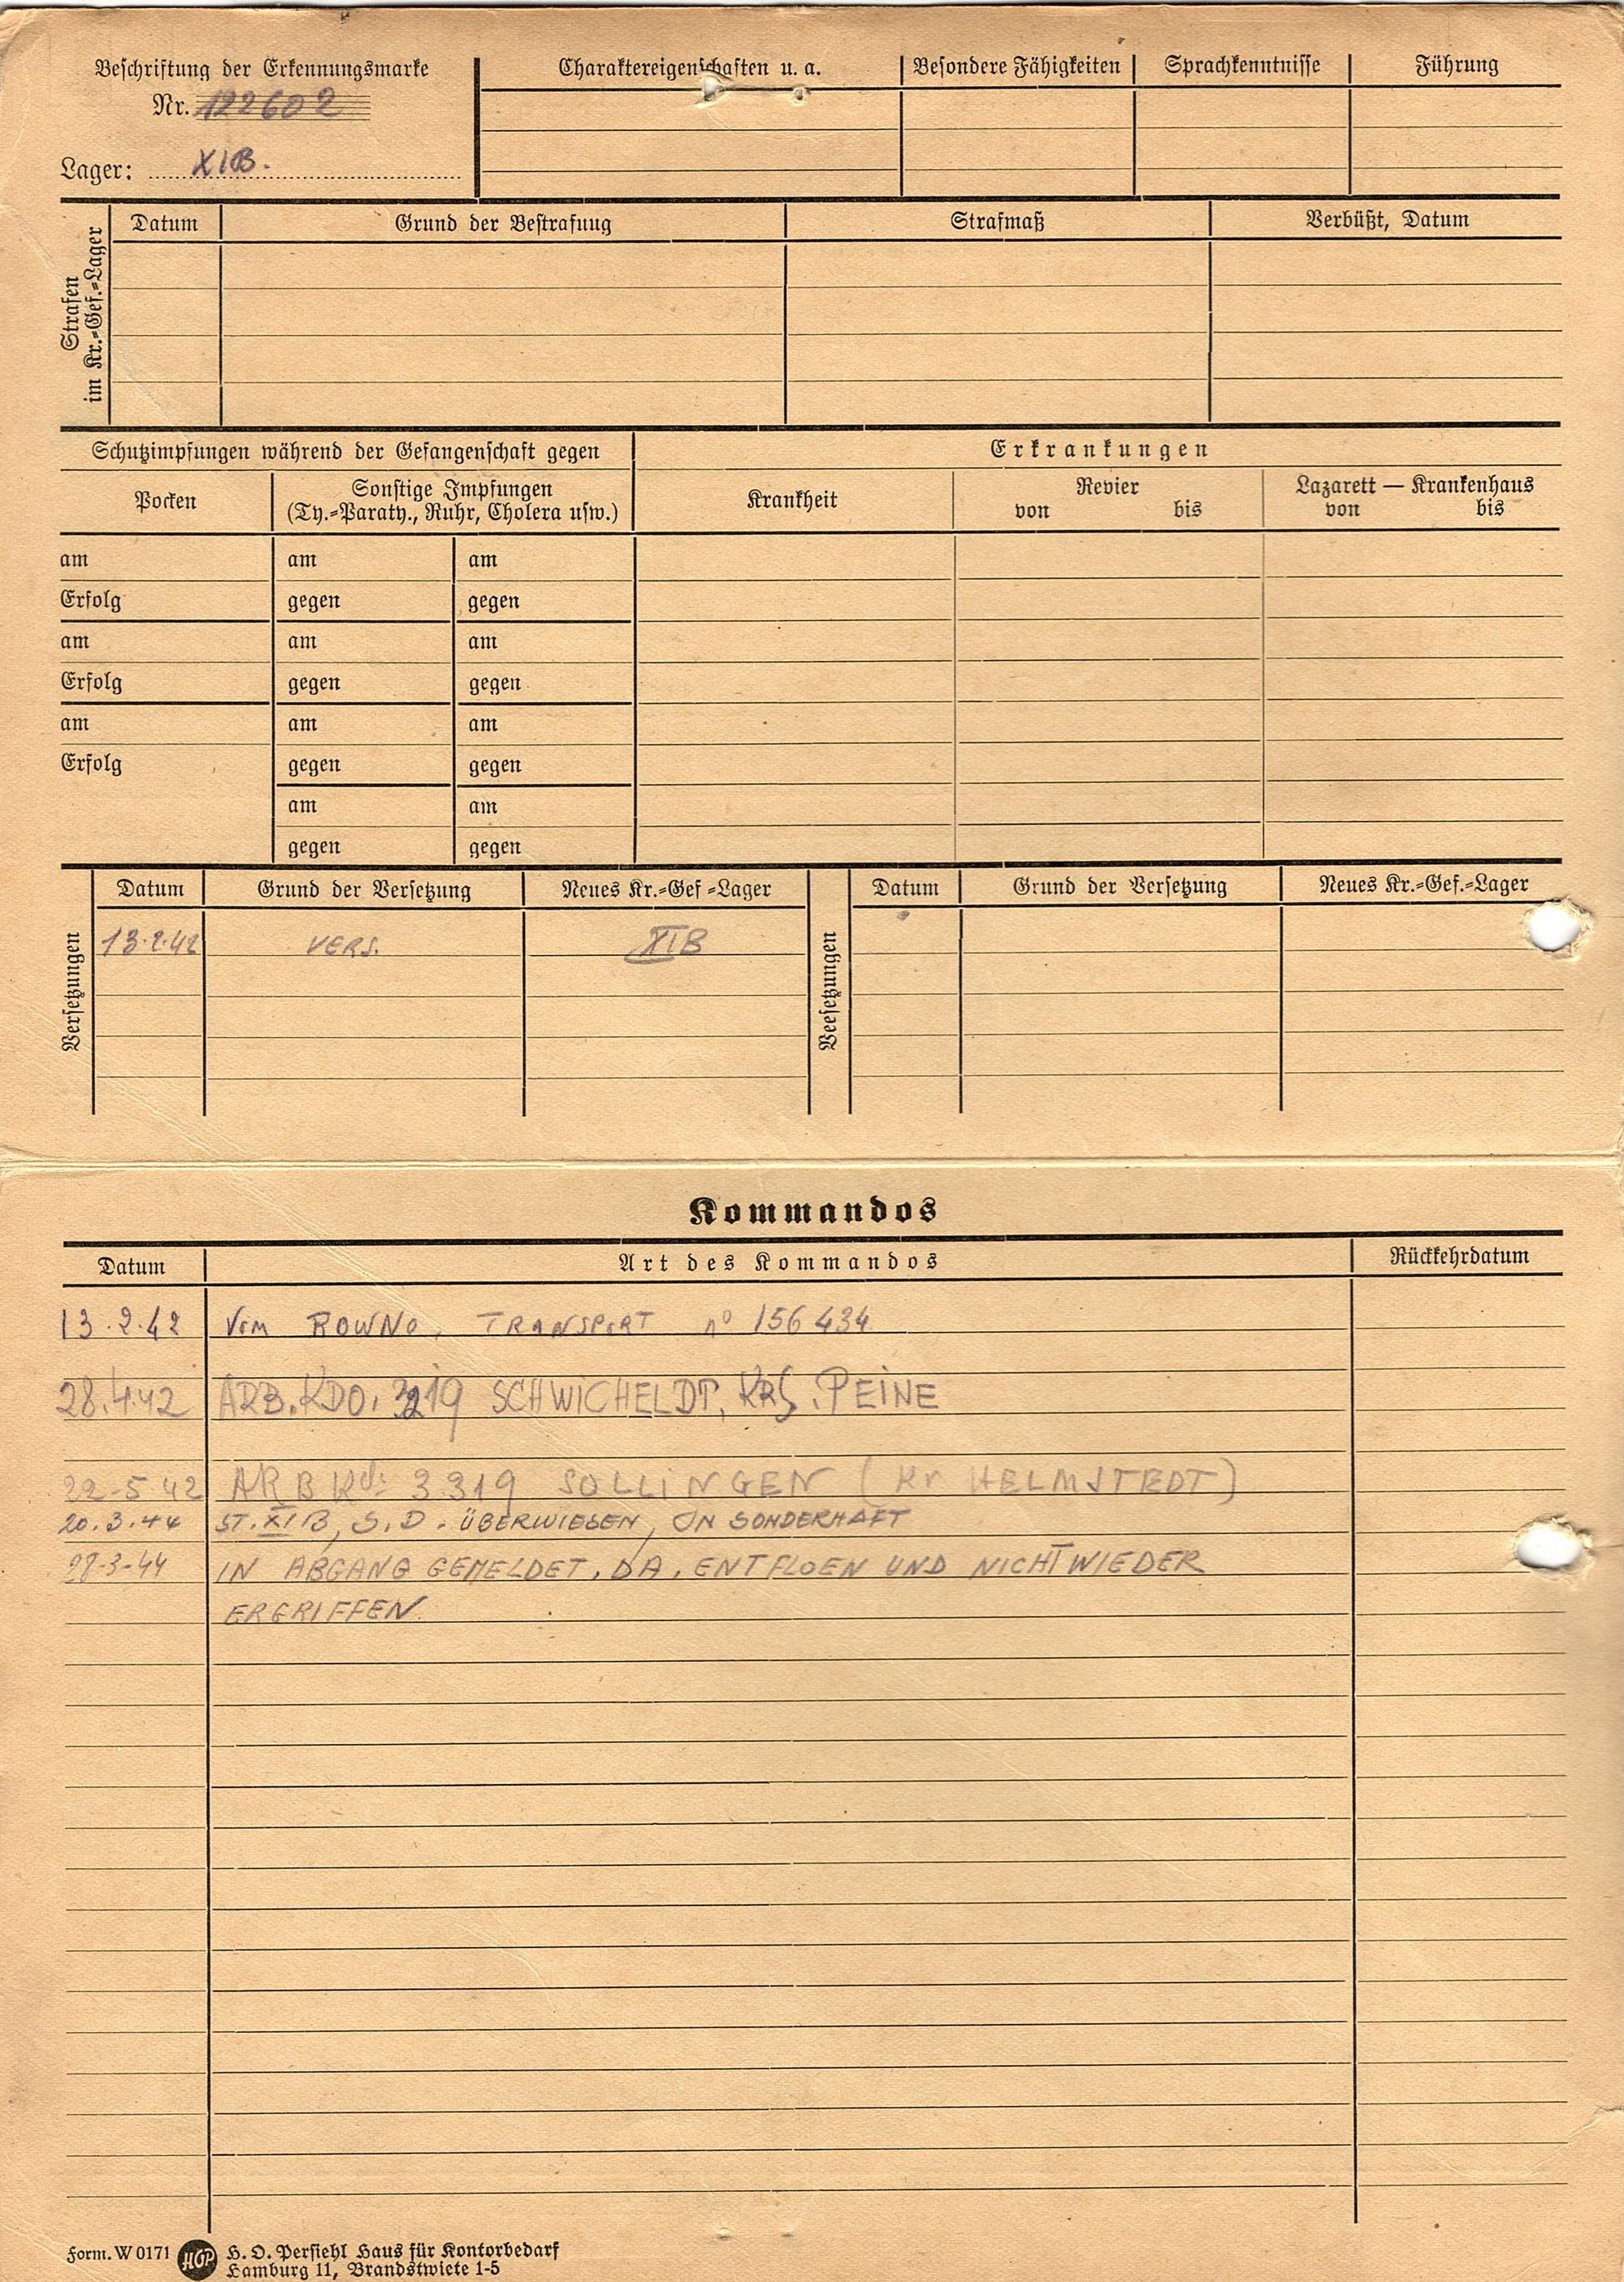 Beschriftung der Erkennungsmarke
Nr. 122602
Lager: XIB.
Charaktereigenschaften u. a.
Besondere Fähigkeiten
Sprachkenntnisse
Führung
Strafen
im Kr.=Gef.=Lager
Datum
Grund der Bestrafung
Strafmaß
Verbüßt, Datum
Schutzimpfungen während der Gefangenschaft gegen
Erkrankungen
Pocken
Sonstige Impfungen
(Ty.=Paraty., Ruhr, Cholera usw.)
Krankheit
Revier
von bis
Lazarett — Krankenhaus
von bis
am am am
Erfolg gegen gegen
am am am
Erfolg gegen gegen
am am am
Erfolg gegen gegen
am am
gegen gegen
Versetzungen
Datum Grund der Versetzung Neues Kr.=Gef =Lager
13.2.42 VERS. XIB
Veesetzungen
Datum Grund der Versetzung Neues Kr.=Gef.=Lager
Kommandos
Datum Art des Kommandos Rückkehrdatum
13.2.42 Vom ROWNO, TRANSPORT nº 156434
28.4.42 ARB.KDO. 3219 SCHWICHELDT, KRS. PEINE
22-5 42 ARB Kdo 3319 SOLLINGEN (Kr HELMSTEDT)
20.3.44 ST. XIB, S.D. ÜBERWIESEN, IN SONDERHAFT
IN ABGANG GEMELDET, DA, ENTFLOEN UND NICHT WIEDER
ERGRIFFEN.
Form. W 0171 HOP H. O. Persiehl Haus für Kontorbedarf
Hamburg 11, Brandstwiete 1-5